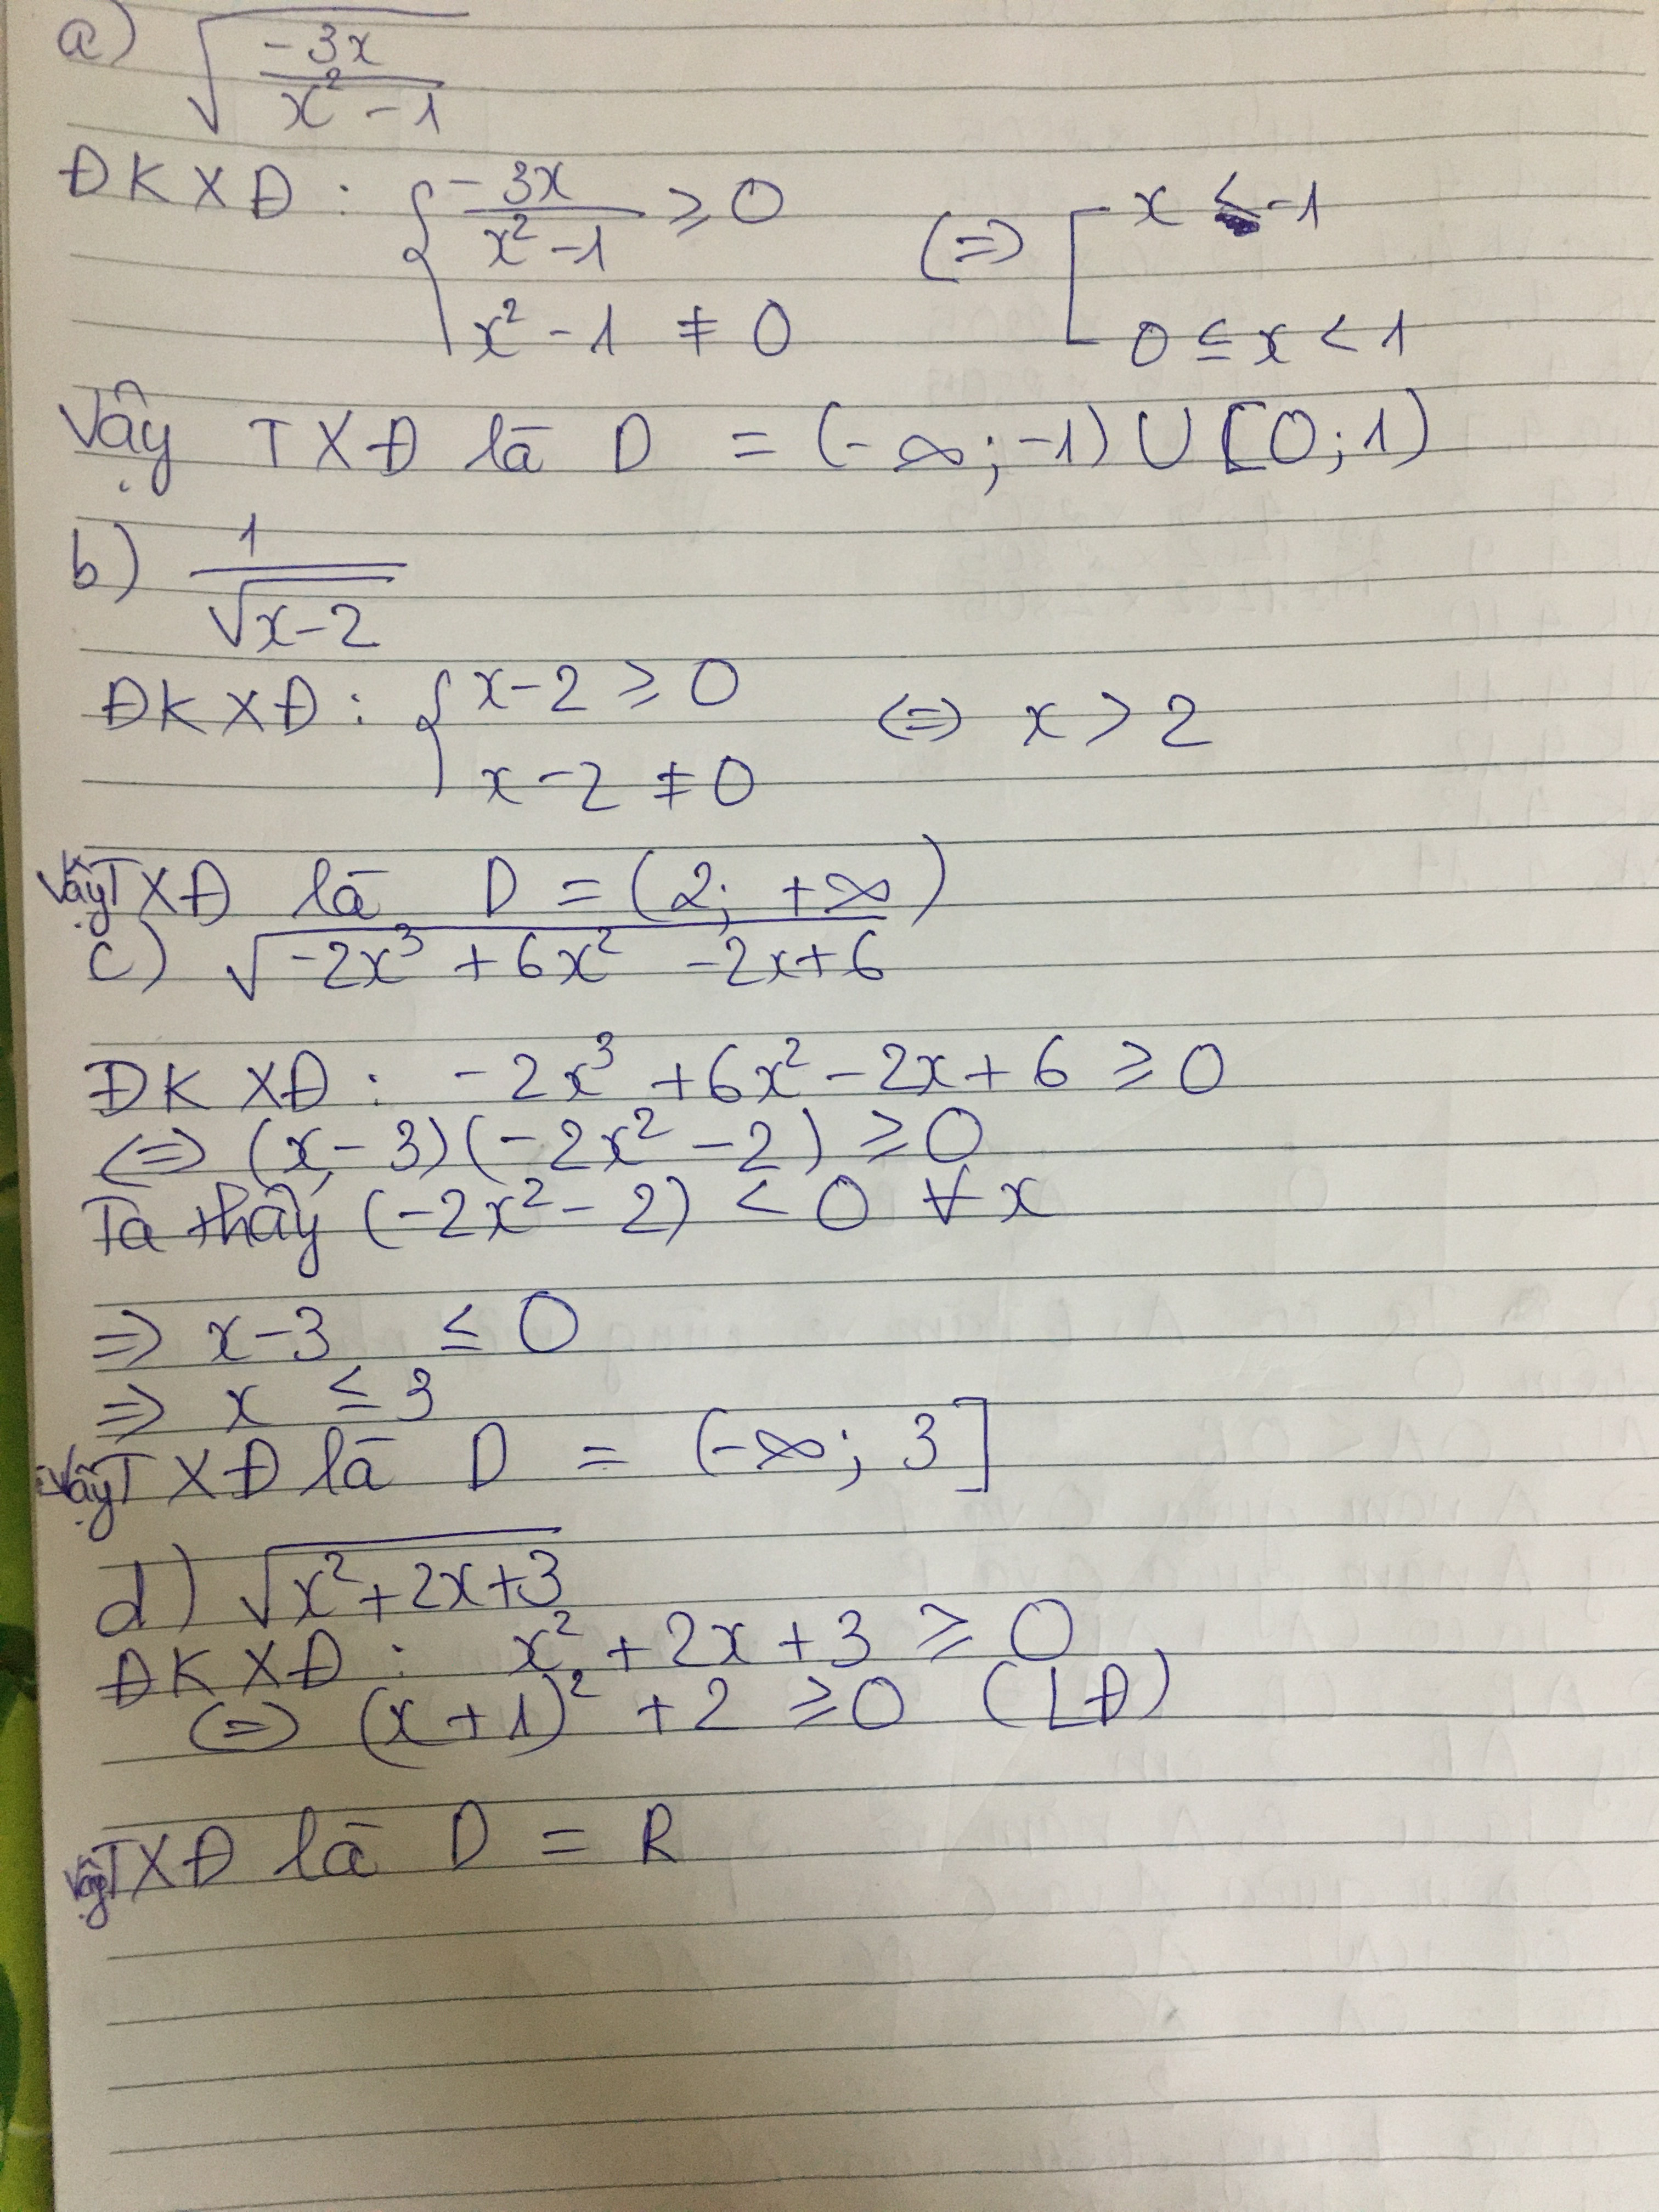 a) √(-3x / x² - 1)
ĐKXĐ : { -3x / x² - 1 ≥ 0 (=) [ x < -1
x² - 1 ≠ 0 0 ≤ x < 1
Vậy TXĐ là D = (-∞; -1) ∪ [0; 1)
b) 1 / √x-2
ĐKXĐ : { x-2 ≥ 0 (=) x > 2
x-2 ≠ 0
Vậy TXĐ là D = (2; +∞)
c) √-2x³ + 6x² - 2x + 6
ĐKXĐ : -2x³ + 6x² - 2x + 6 ≥ 0
(=) (x - 3)(-2x² - 2) ≥ 0
Ta thấy (-2x² - 2) < 0 ∀x
=) x-3 ≤ 0
=) x ≤ 3
Vậy TXĐ là D = (-∞; 3]
d) √x² + 2x + 3
ĐKXĐ : x² + 2x + 3 ≥ 0
(=) (x + 1)² + 2 ≥ 0 (LĐ)
Vậy TXĐ là D = R